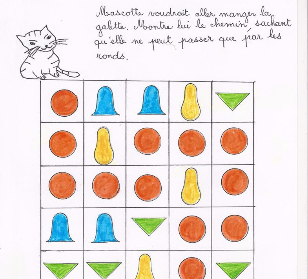 Mascotte voudrait aller manger la
galette. Montre lui le chemin sachant
qu'elle ne peut passer que par les
ronds.